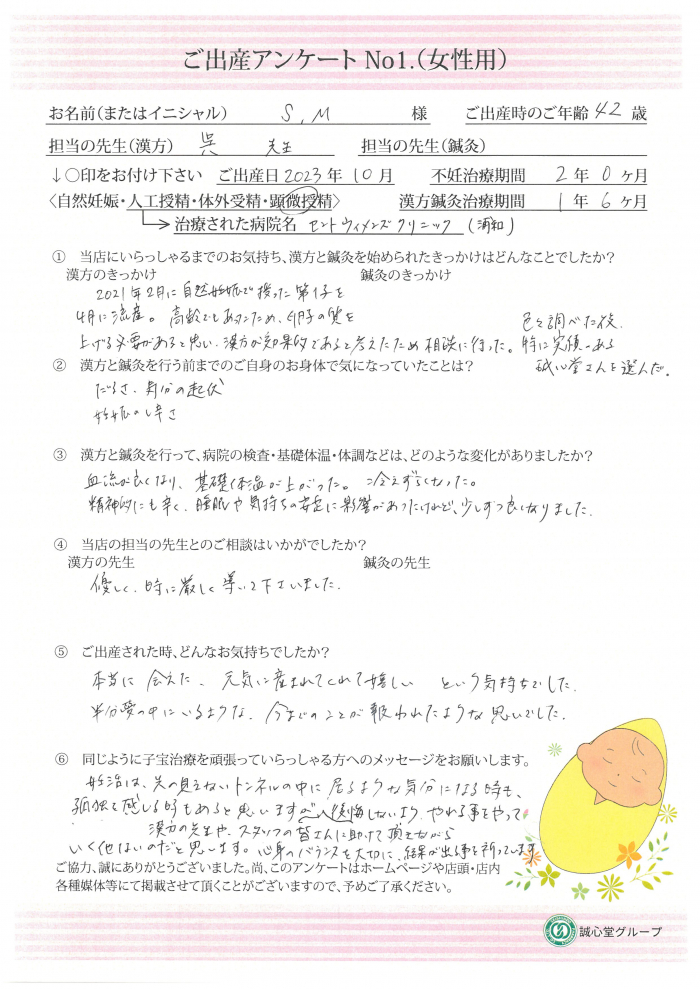 ご出産アンケート No1.（女性用）
お名前（またはイニシャル） S,M 様 ご出産時のご年齢 42 歳
担当の先生（漢方） 呉 先生 担当の先生（鍼灸）
↓〇印をお付け下さい ご出産日 2023 年 10 月 不妊治療期間 2 年 0 ヶ月
〈自然妊娠・人工授精・体外受精・顕微授精〉 漢方鍼灸治療期間 1 年 6 ヶ月
治療された病院名 セントウィメンズクリニック （浦和）
① 当店にいらっしゃるまでのお気持ち、漢方と鍼灸を始められたきっかけはどんなことでしたか？
漢方のきっかけ 鍼灸のきっかけ
2021年2月に自然妊娠で授った第1子を
4月に流産。高齢でもあったため、卵子の質を
色々調べた後、
上げる必要があると思い、漢方が効果的であると考えたため相談に行った。特に実績のある
誠心堂さんを選んだ。
② 漢方と鍼灸を行う前までのご自身のお身体で気になっていたことは？
だるさ、気分の起伏
妊娠のし辛さ
③ 漢方と鍼灸を行って、病院の検査・基礎体温・体調などは、どのような変化がありましたか？
血流が良くなり、基礎体温が上がった。冷えずらくなった。
精神的にも辛く、睡眠や気持ちの安定に影響があったけれど、少しずつ良くなりました。
④ 当店の担当の先生とのご相談はいかがでしたか？
漢方の先生 鍼灸の先生
優しく、時に厳しく導いて下さいました。
⑤ ご出産された時、どんなお気持ちでしたか？
本当に会えた、元気に産まれてくれて嬉しい という気持ちでした。
半分夢の中にいるような、今までのことが報われたような思いでした。
⑥ 同じように子宝治療を頑張っていらっしゃる方へのメッセージをお願いします。
妊活は、先の見えないトンネルの中に居るような気分になる時も、
孤独を感じる時もあると思いますが、後悔しないよう、やれる事をやって
漢方の先生や、スタッフの皆さんに助けて頂きながら
いく他ないのだと思います。心身のバランスを大切に、結果が出る事を祈っています。
ご協力、誠にありがとうございました。尚、このアンケートはホームページや店頭・店内
各種媒体等にて掲載させて頂くことがございますので、予めご了承ください。
誠心堂グループ